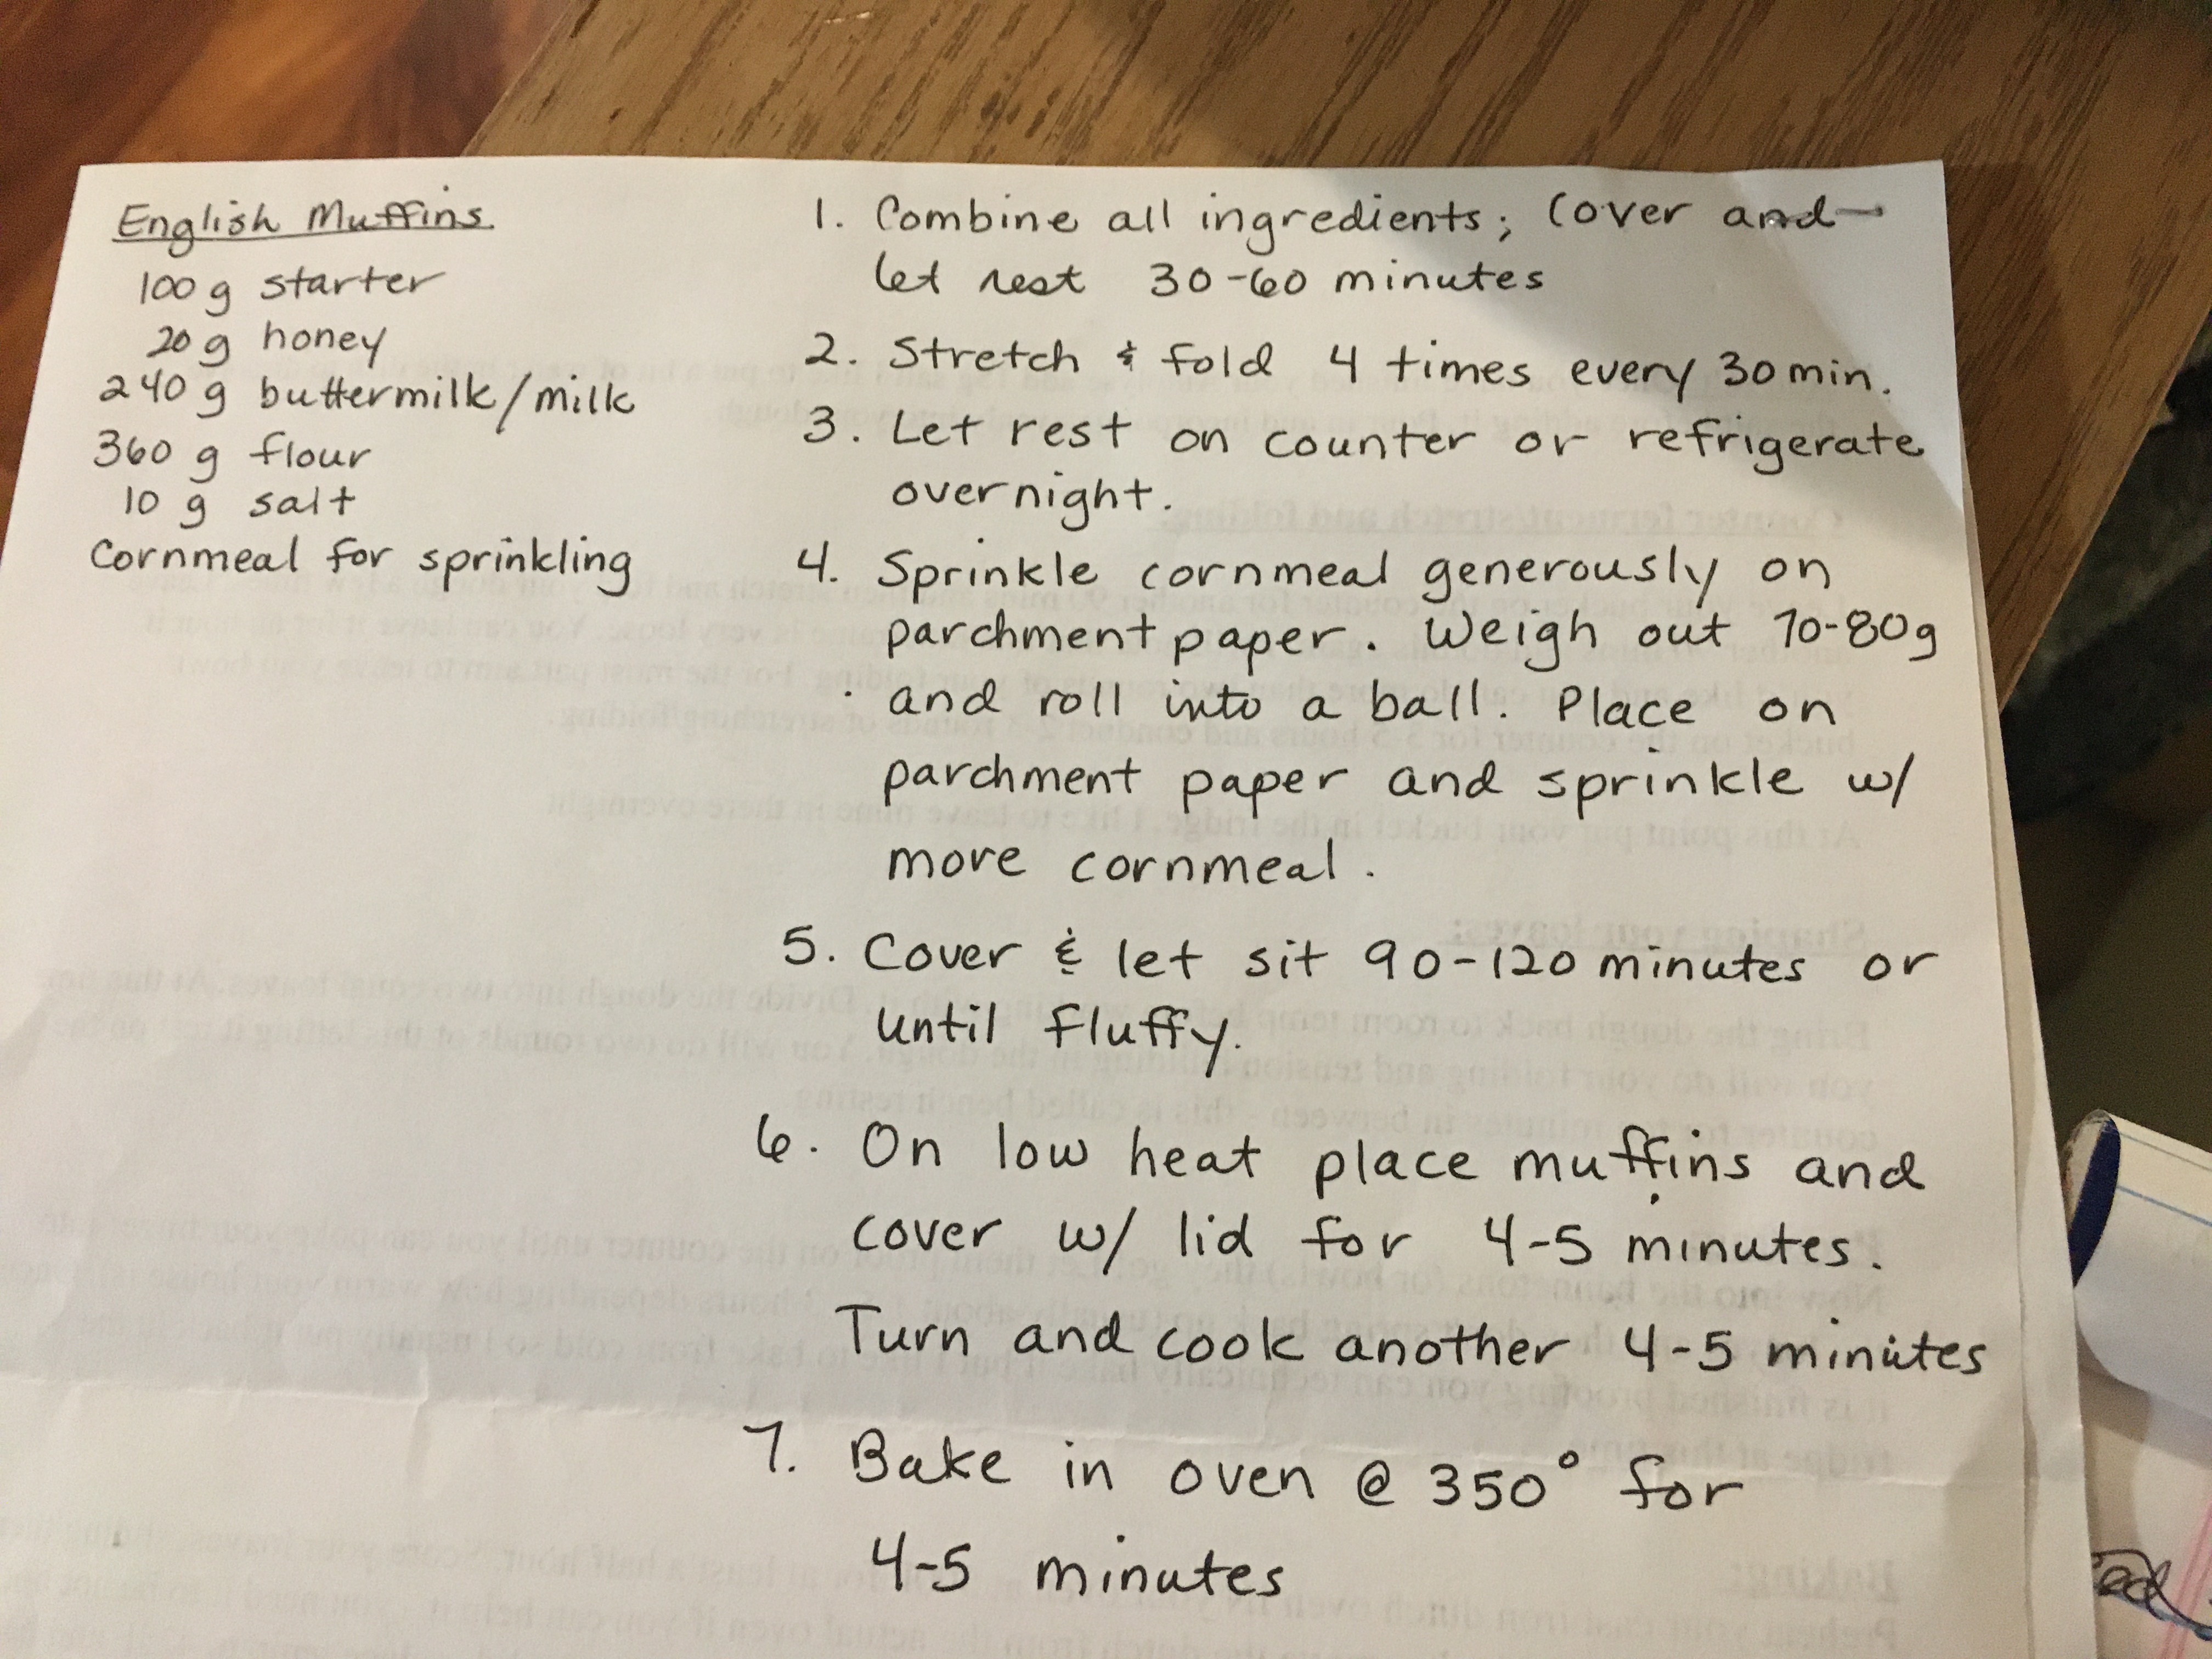 English Muffins
100 g starter
20 g honey
240 g buttermilk/milk
360 g flour
10 g salt
Cornmeal for sprinkling
1. Combine all ingredients; Cover and →
let rest 30-60 minutes
2. Stretch & fold 4 times every 30 min.
3. Let rest on counter or refrigerate
overnight.
4. Sprinkle cornmeal generously on
parchment paper. Weigh out 70-80g
and roll into a ball. Place on
parchment paper and sprinkle w/
more cornmeal.
5. Cover & let sit 90-120 minutes or
until fluffy.
6. On low heat place muffins and
cover w/ lid for 4-5 minutes.
Turn and cook another 4-5 minutes
7. Bake in oven @ 350° for
4-5 minutes